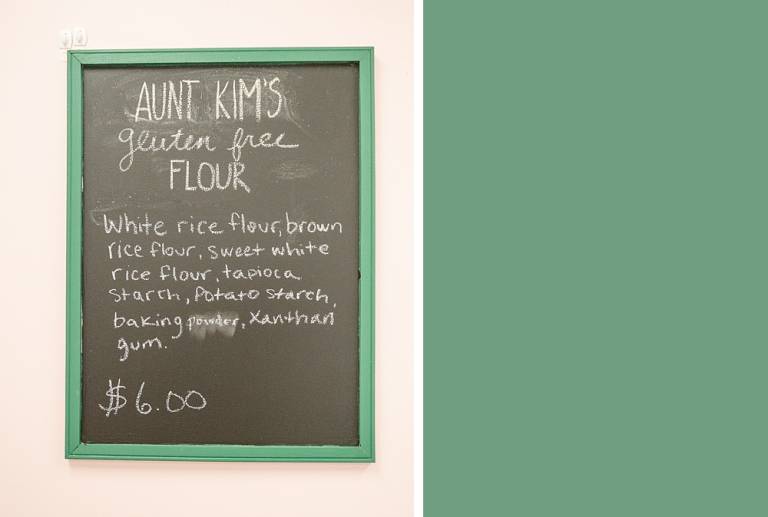 AUNT KIM'S
gluten free
FLOUR
White rice flour, brown
rice flour, sweet white
rice flour, tapioca
starch, Potato starch,
baking powder, Xanthan
gum.
$6.00